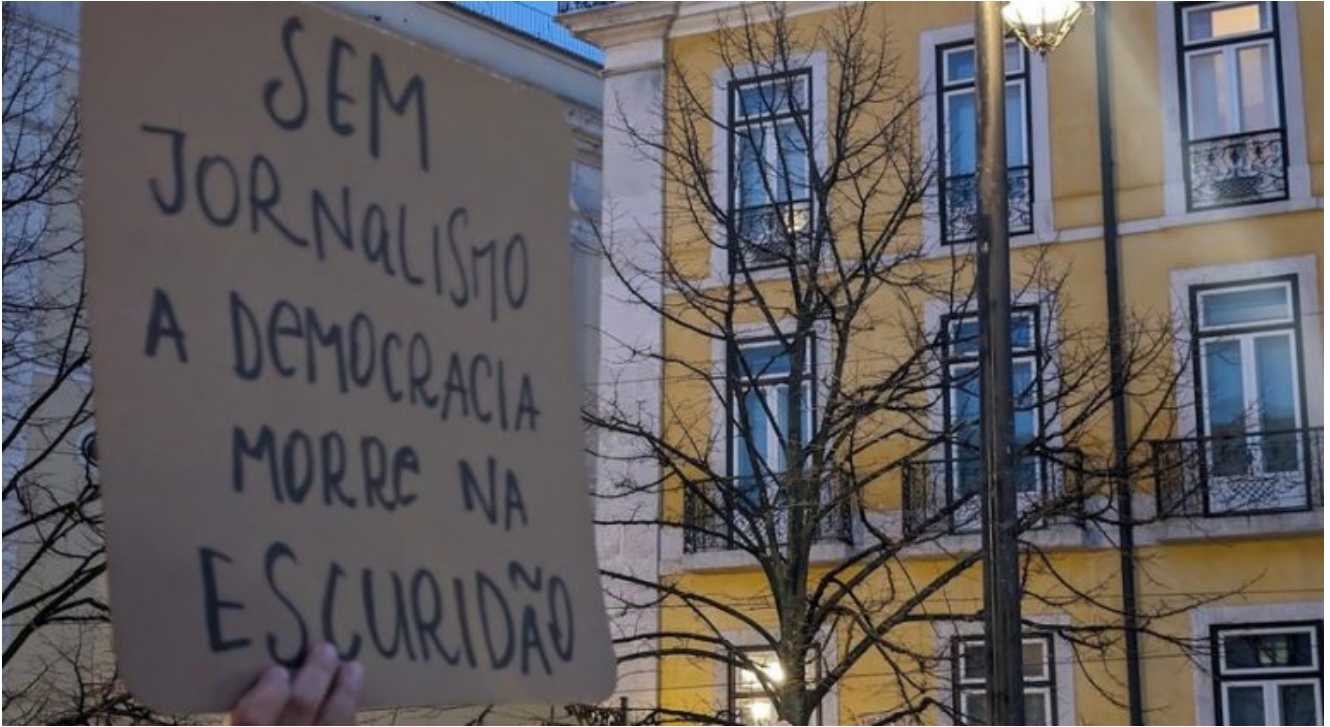 SEM
JORNALISMO
A DEMOCRACIA
MORRE NA
ESCURIDÃO